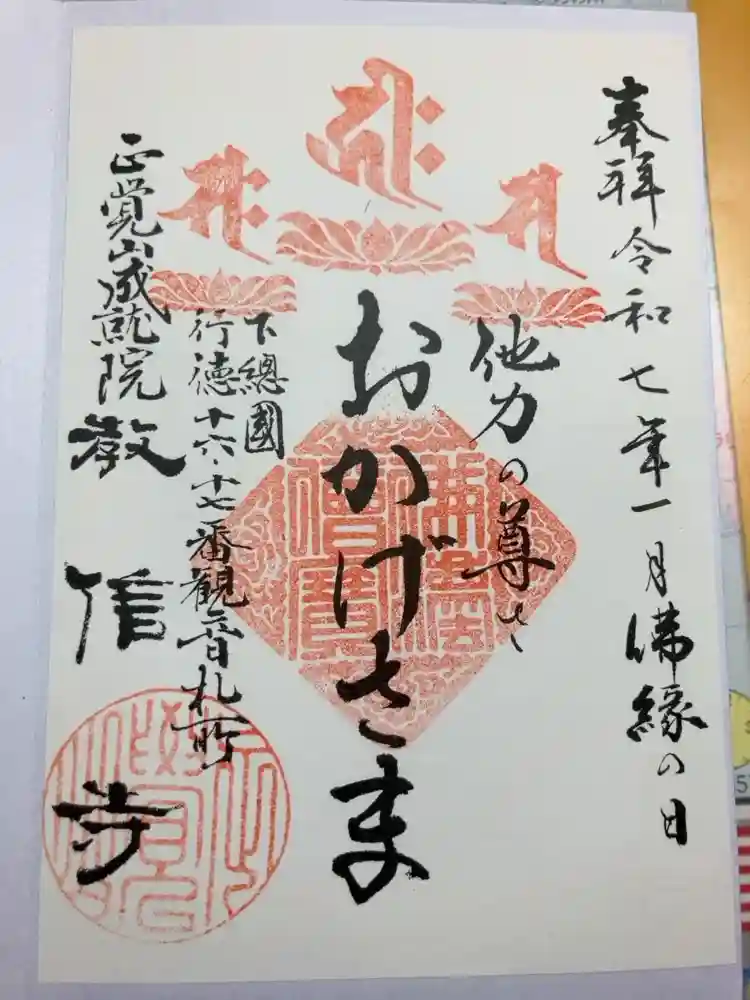 奉拝令和七年一月佛縁の日
他力の尊さ
おかげさま
下總國
行德十六、十七番観音札所
正覚山成就院教信寺